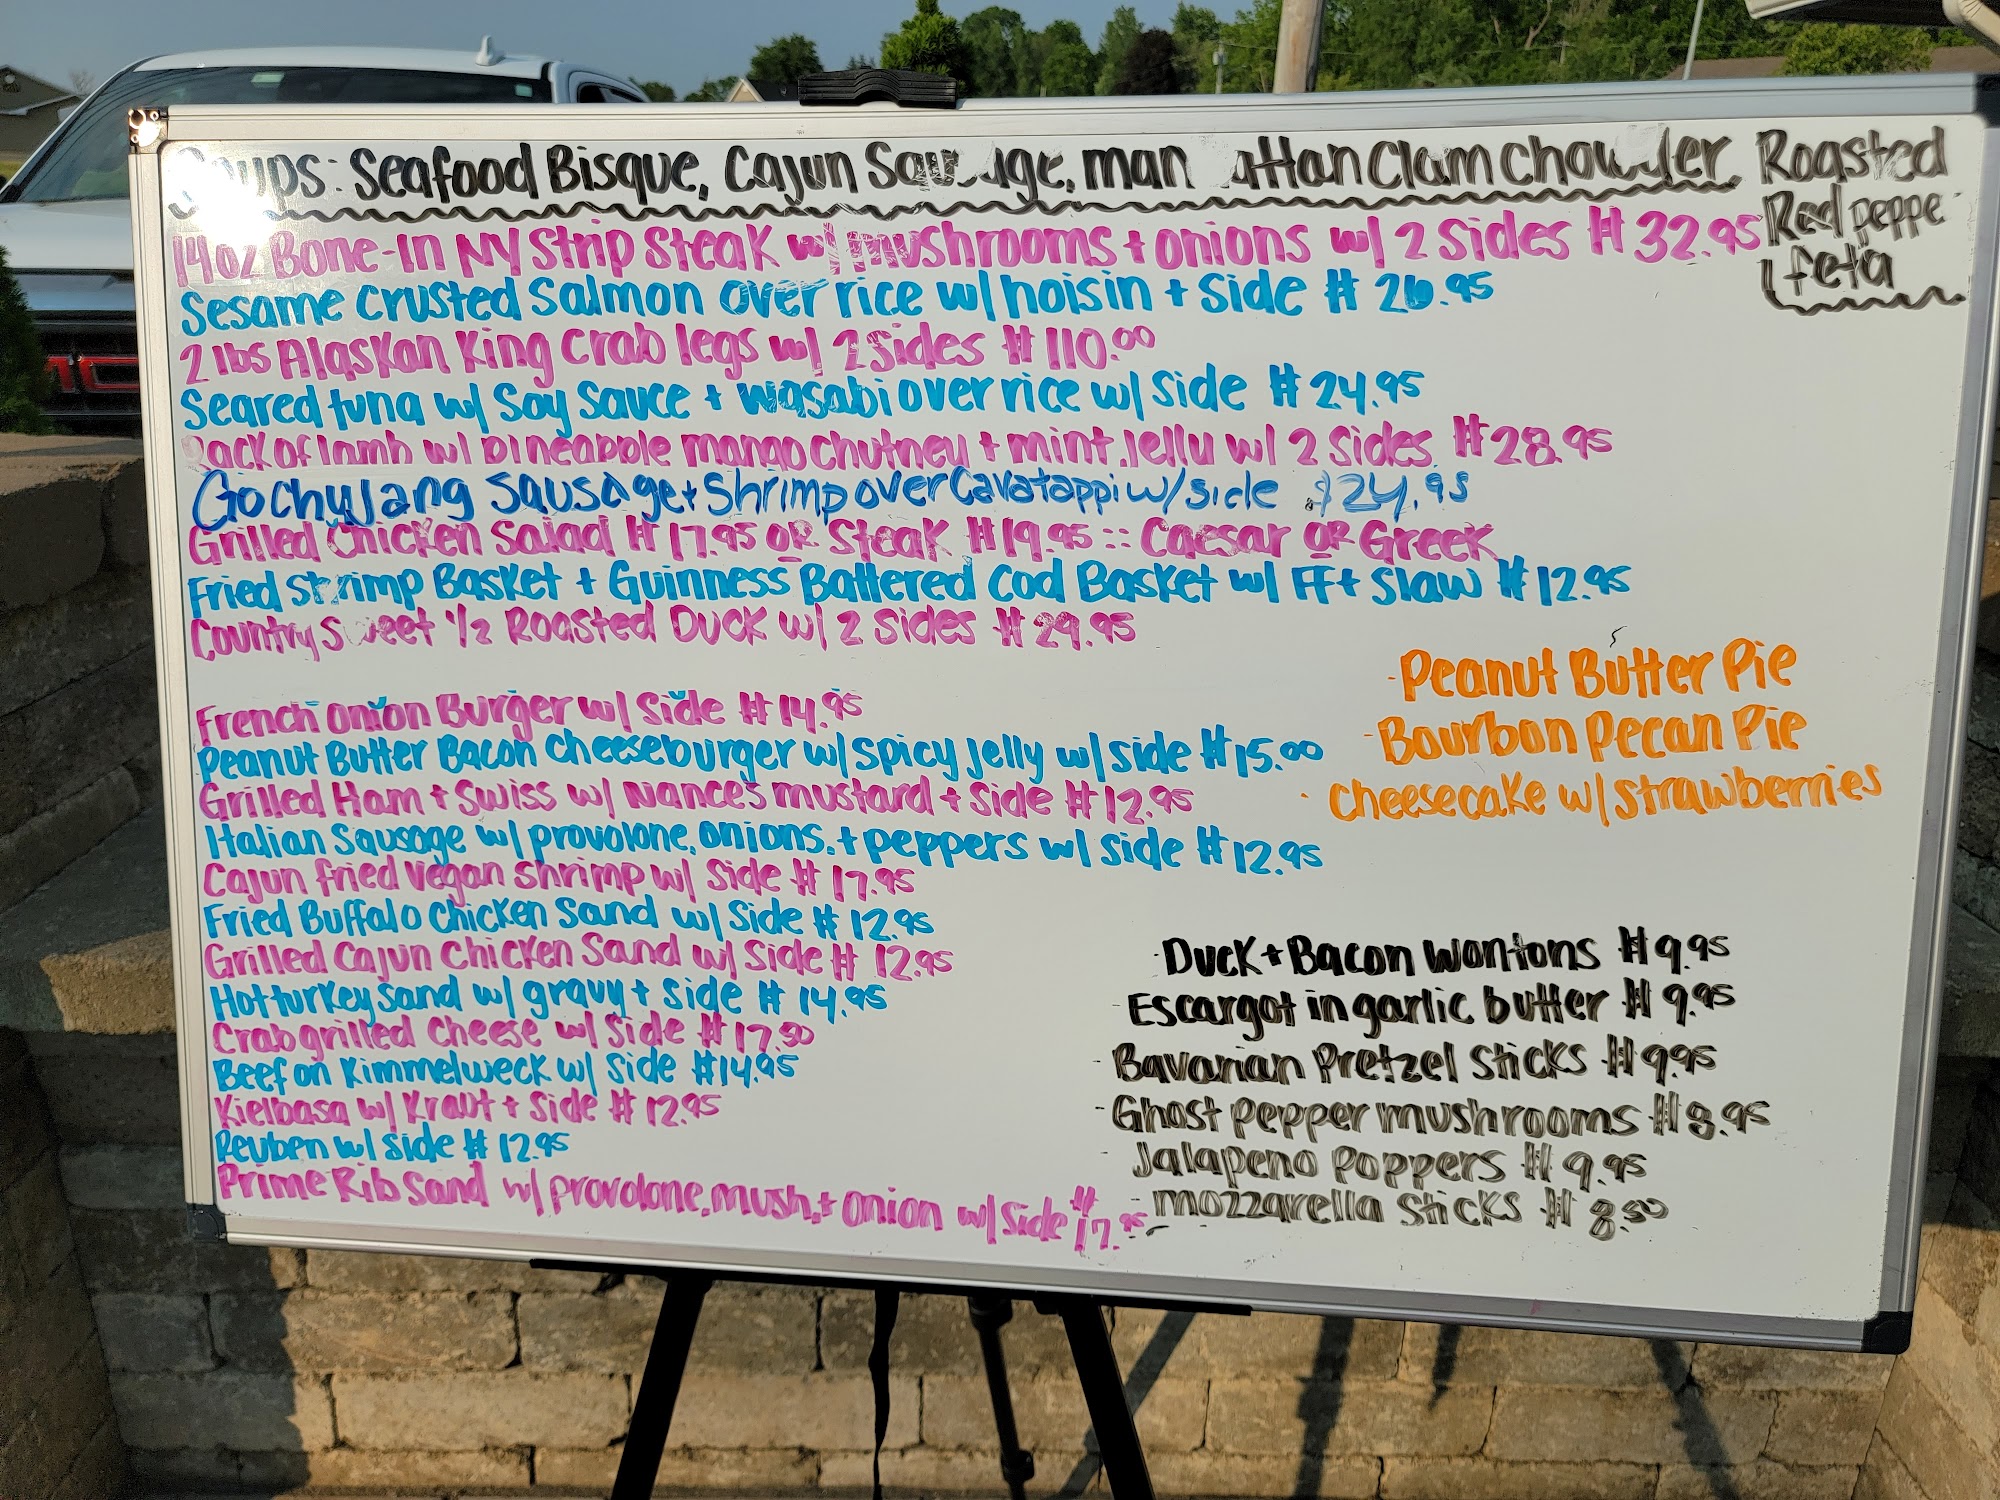 Soups: Seafood Bisque, Cajun Sausage, Manhattan Clam Chowder, Roasted
Red peppe
feta
14oz Bone-In NY Strip Steak w/ mushrooms + onions w/ 2 Sides # 32.95
Sesame Crusted Salmon over rice w/ hoisin + side # 26.95
2 lbs Alaskan King Crab legs w/ 2 Sides # 110.00
Seared tuna w/ Soy Sauce + wasabi over rice w/ side # 24.95
Rack of lamb w/ pineapple mango chutney + mint Jelly w/ 2 Sides # 28.95
Gochujang Sausage + Shrimp over Cavatappi w/ side $24.95
Grilled Chicken Salad # 17.95 OR Steak # 19.95 :: Caesar OR Greek
Fried Shrimp Basket + Guinness Battered Cod Basket w/ FF + Slaw # 12.95
Country Sweet 1/2 Roasted Duck w/ 2 Sides # 29.95
French Onion Burger w/ Side # 14.95
Peanut Butter Bacon Cheeseburger w/ spicy Jelly w/ side # 15.00
Grilled Ham + Swiss w/ Nance's mustard + side # 12.95
Italian Sausage w/ provolone, onions, + peppers w/ side # 12.95
Cajun fried vegan shrimp w/ side # 17.95
Fried Buffalo Chicken Sand w/ Side # 12.95
Grilled Cajun Chicken Sand w/ Side # 12.95
Hot turkey sand w/ gravy + side # 14.95
Crab grilled cheese w/ side # 17.50
Beef on Kimmelweck w/ side # 14.95
Kielbasa w/ Kraut + side # 12.95
Reuben w/ side # 12.95
Prime Rib Sand w/ provolone, mush, + onion w/ side # 17.95
- Peanut Butter Pie
- Bourbon Pecan Pie
- Cheesecake w/ strawberries
- Duck + Bacon Wontons # 9.95
- Escargot in garlic butter # 9.95
- Bavarian Pretzel Sticks # 9.95
- Ghost pepper mushrooms # 8.95
- Jalapeno Poppers # 9.95
- mozzarella sticks # 8.50